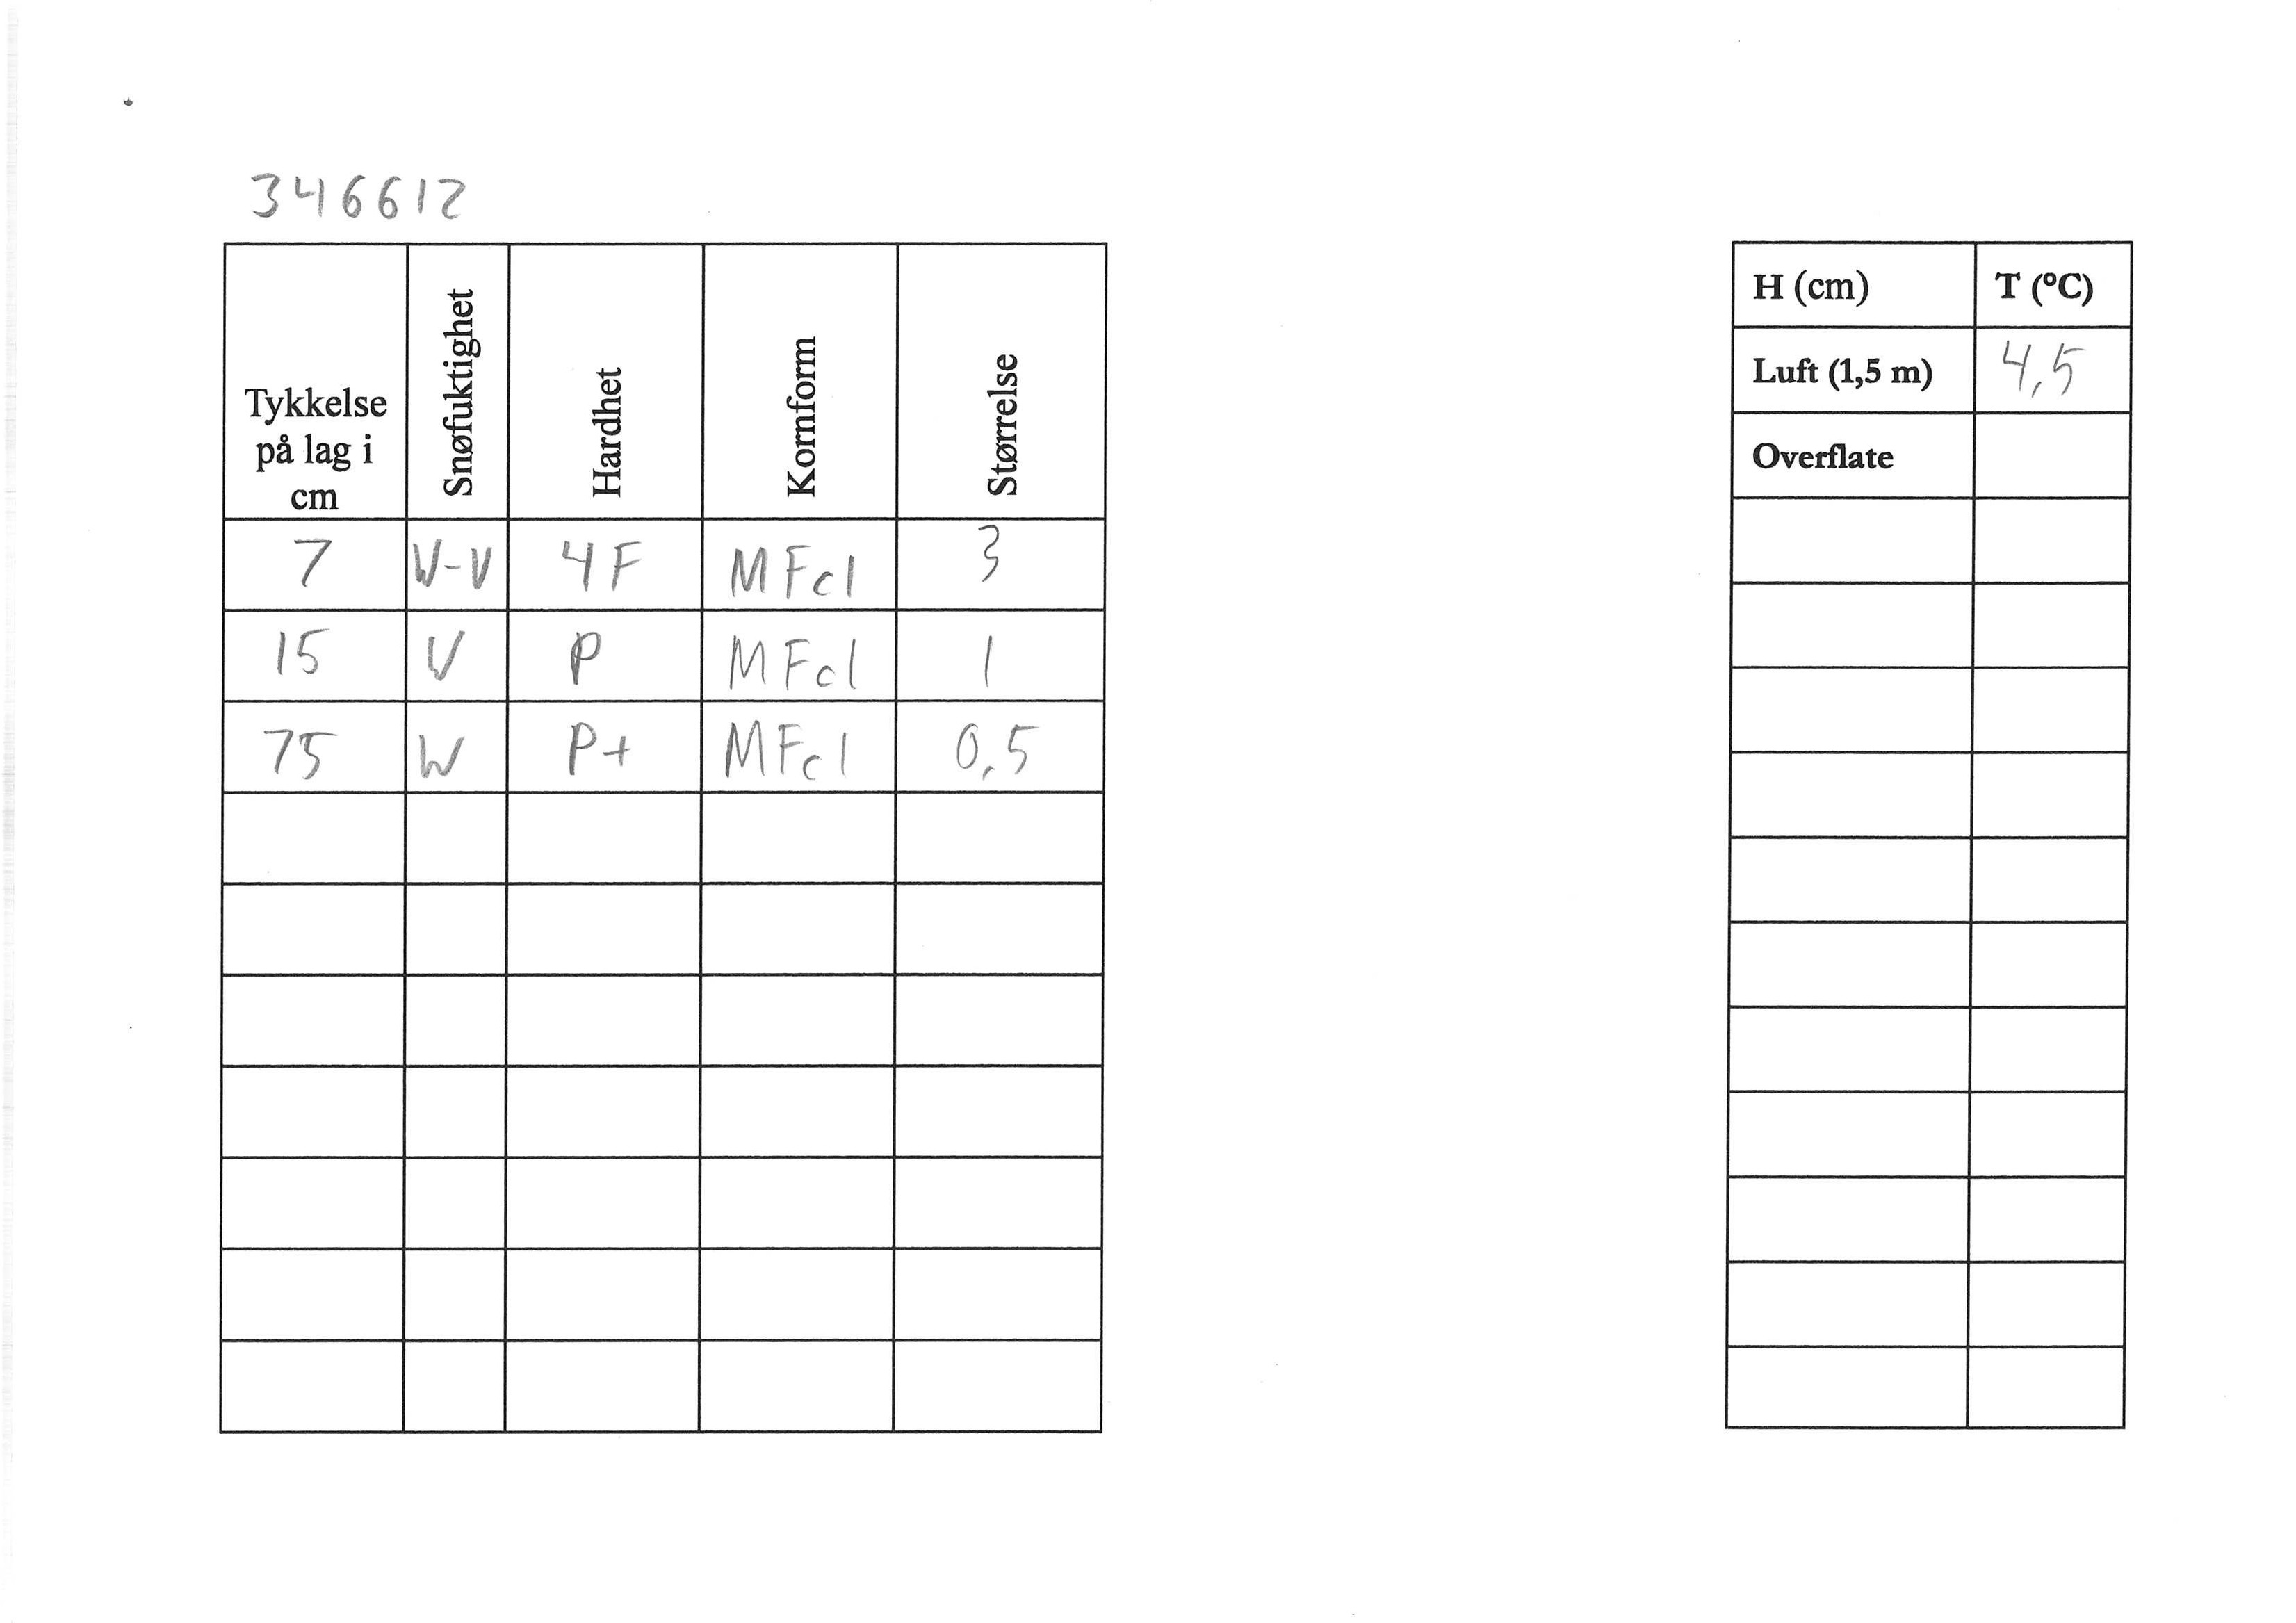 346612
Tykkelse på lag i cm Snøfuktighet Hardhet Kornform Størrelse
7 W-V 4F MFcl 3
15 V P MFcl 1
75 W P+ MFcl 0,5
H (cm) T (°C)
Luft (1,5 m) 4,5
Overflate